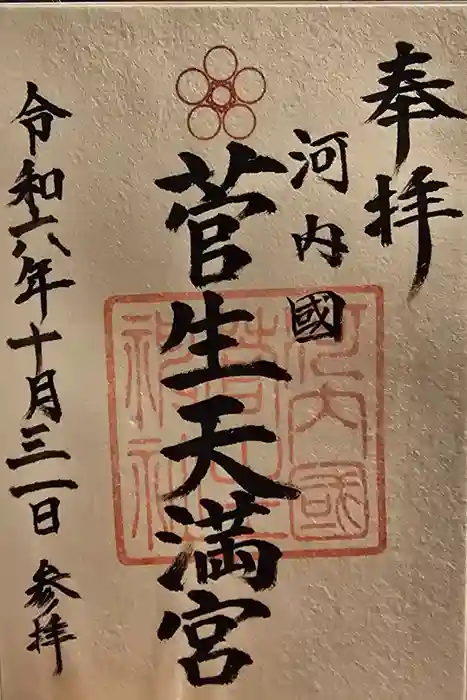 奉拝
河内國
菅生天満宮
河内國
菅生
神社
令和六年十月三一日 参拝